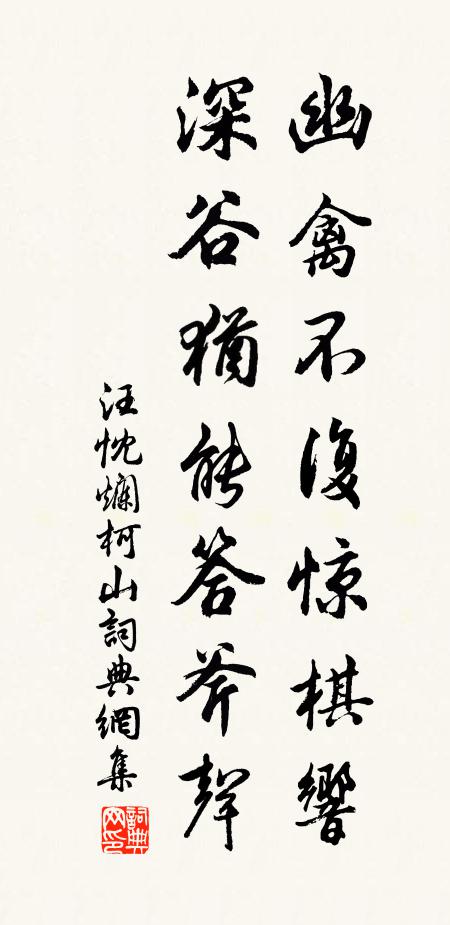 幽禽不復惊棋響
深谷猶能答斧聲
汪忱爛柯山詞典網集
詞典网印